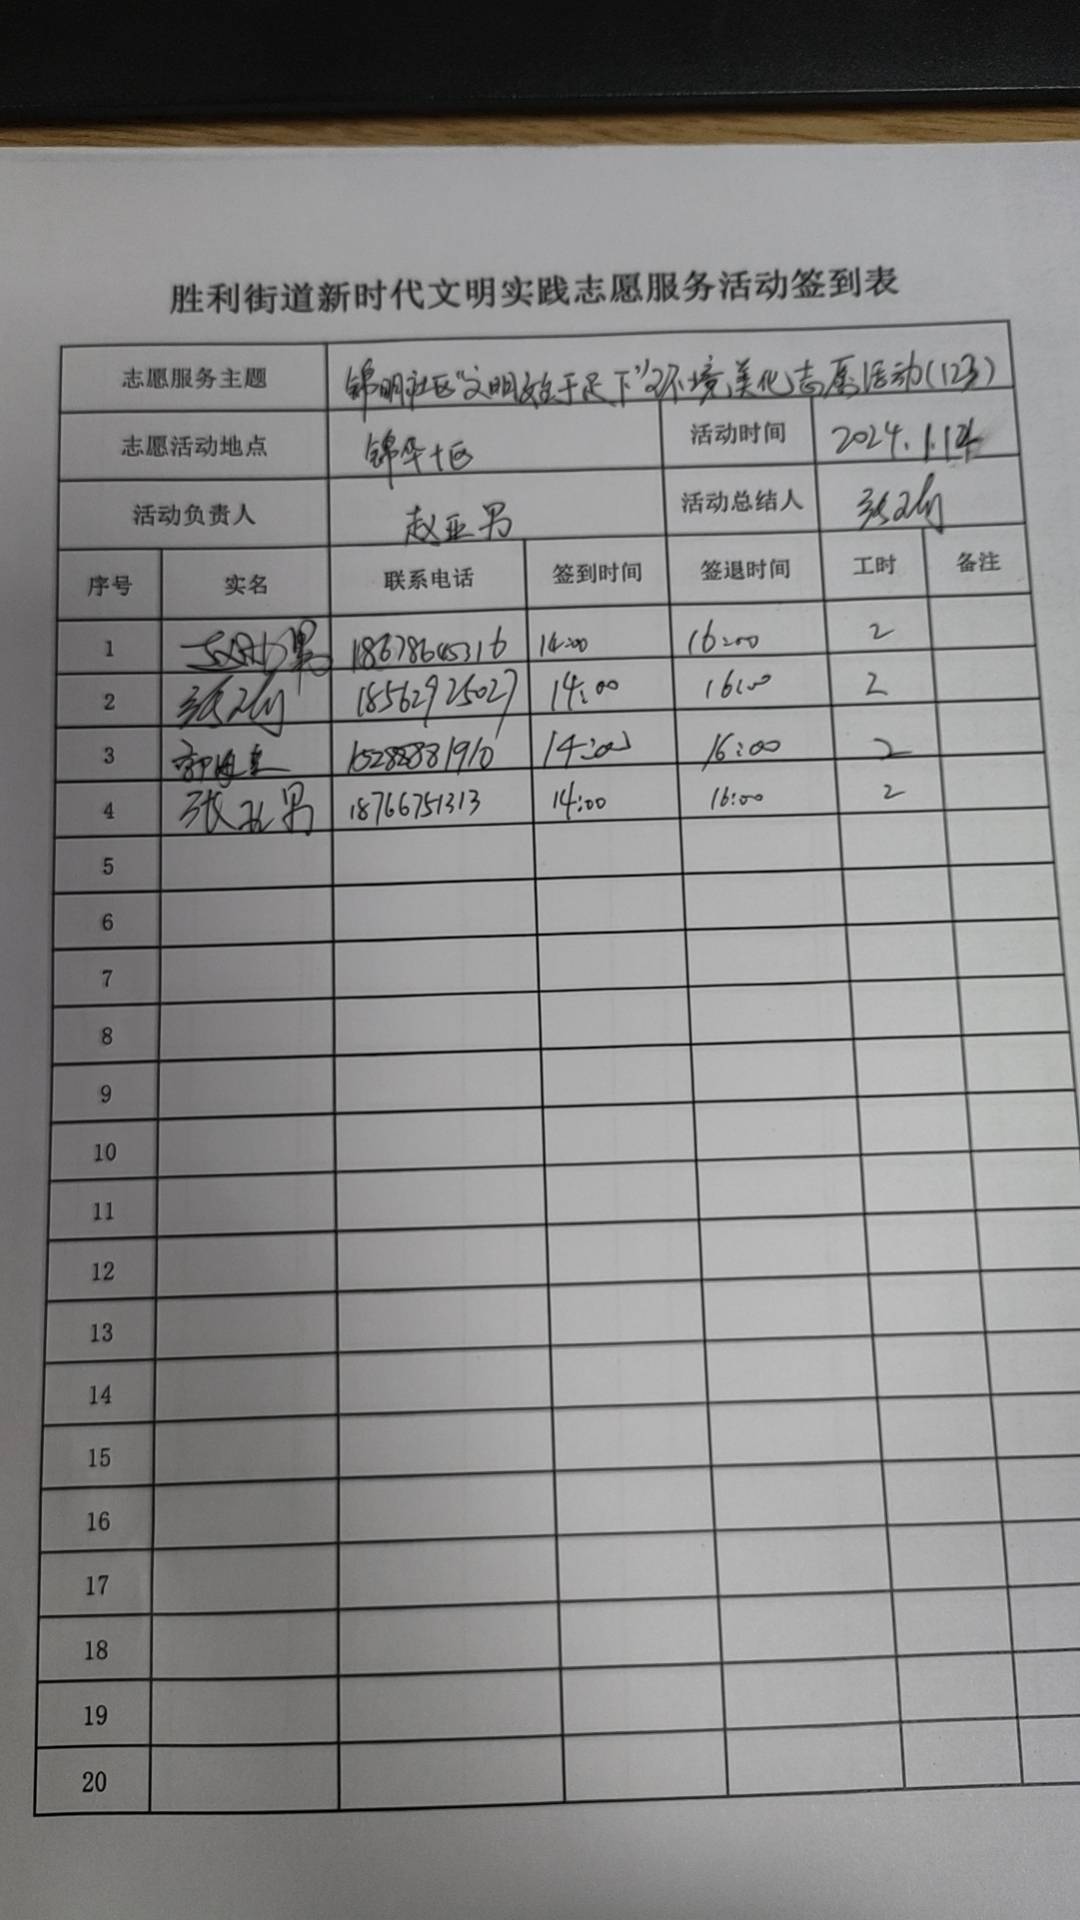 胜利街道新时代文明实践志愿服务活动签到表
志愿服务主题 锦明社区“文明始于足下”之环境美化志愿活动(123)
志愿活动地点 锦华十区 活动时间 2024.1.12
活动负责人 赵亚男 活动总结人
序号 实名 联系电话 签到时间 签退时间 工时 备注
1 18678645316 14:00 16:00 2
2 18562925027 14:00 16:00 2
3 15288881910 14:00 16:00 2
4 18766751313 14:00 16:00 2
5
6
7
8
9
10
11
12
13
14
15
16
17
18
19
20